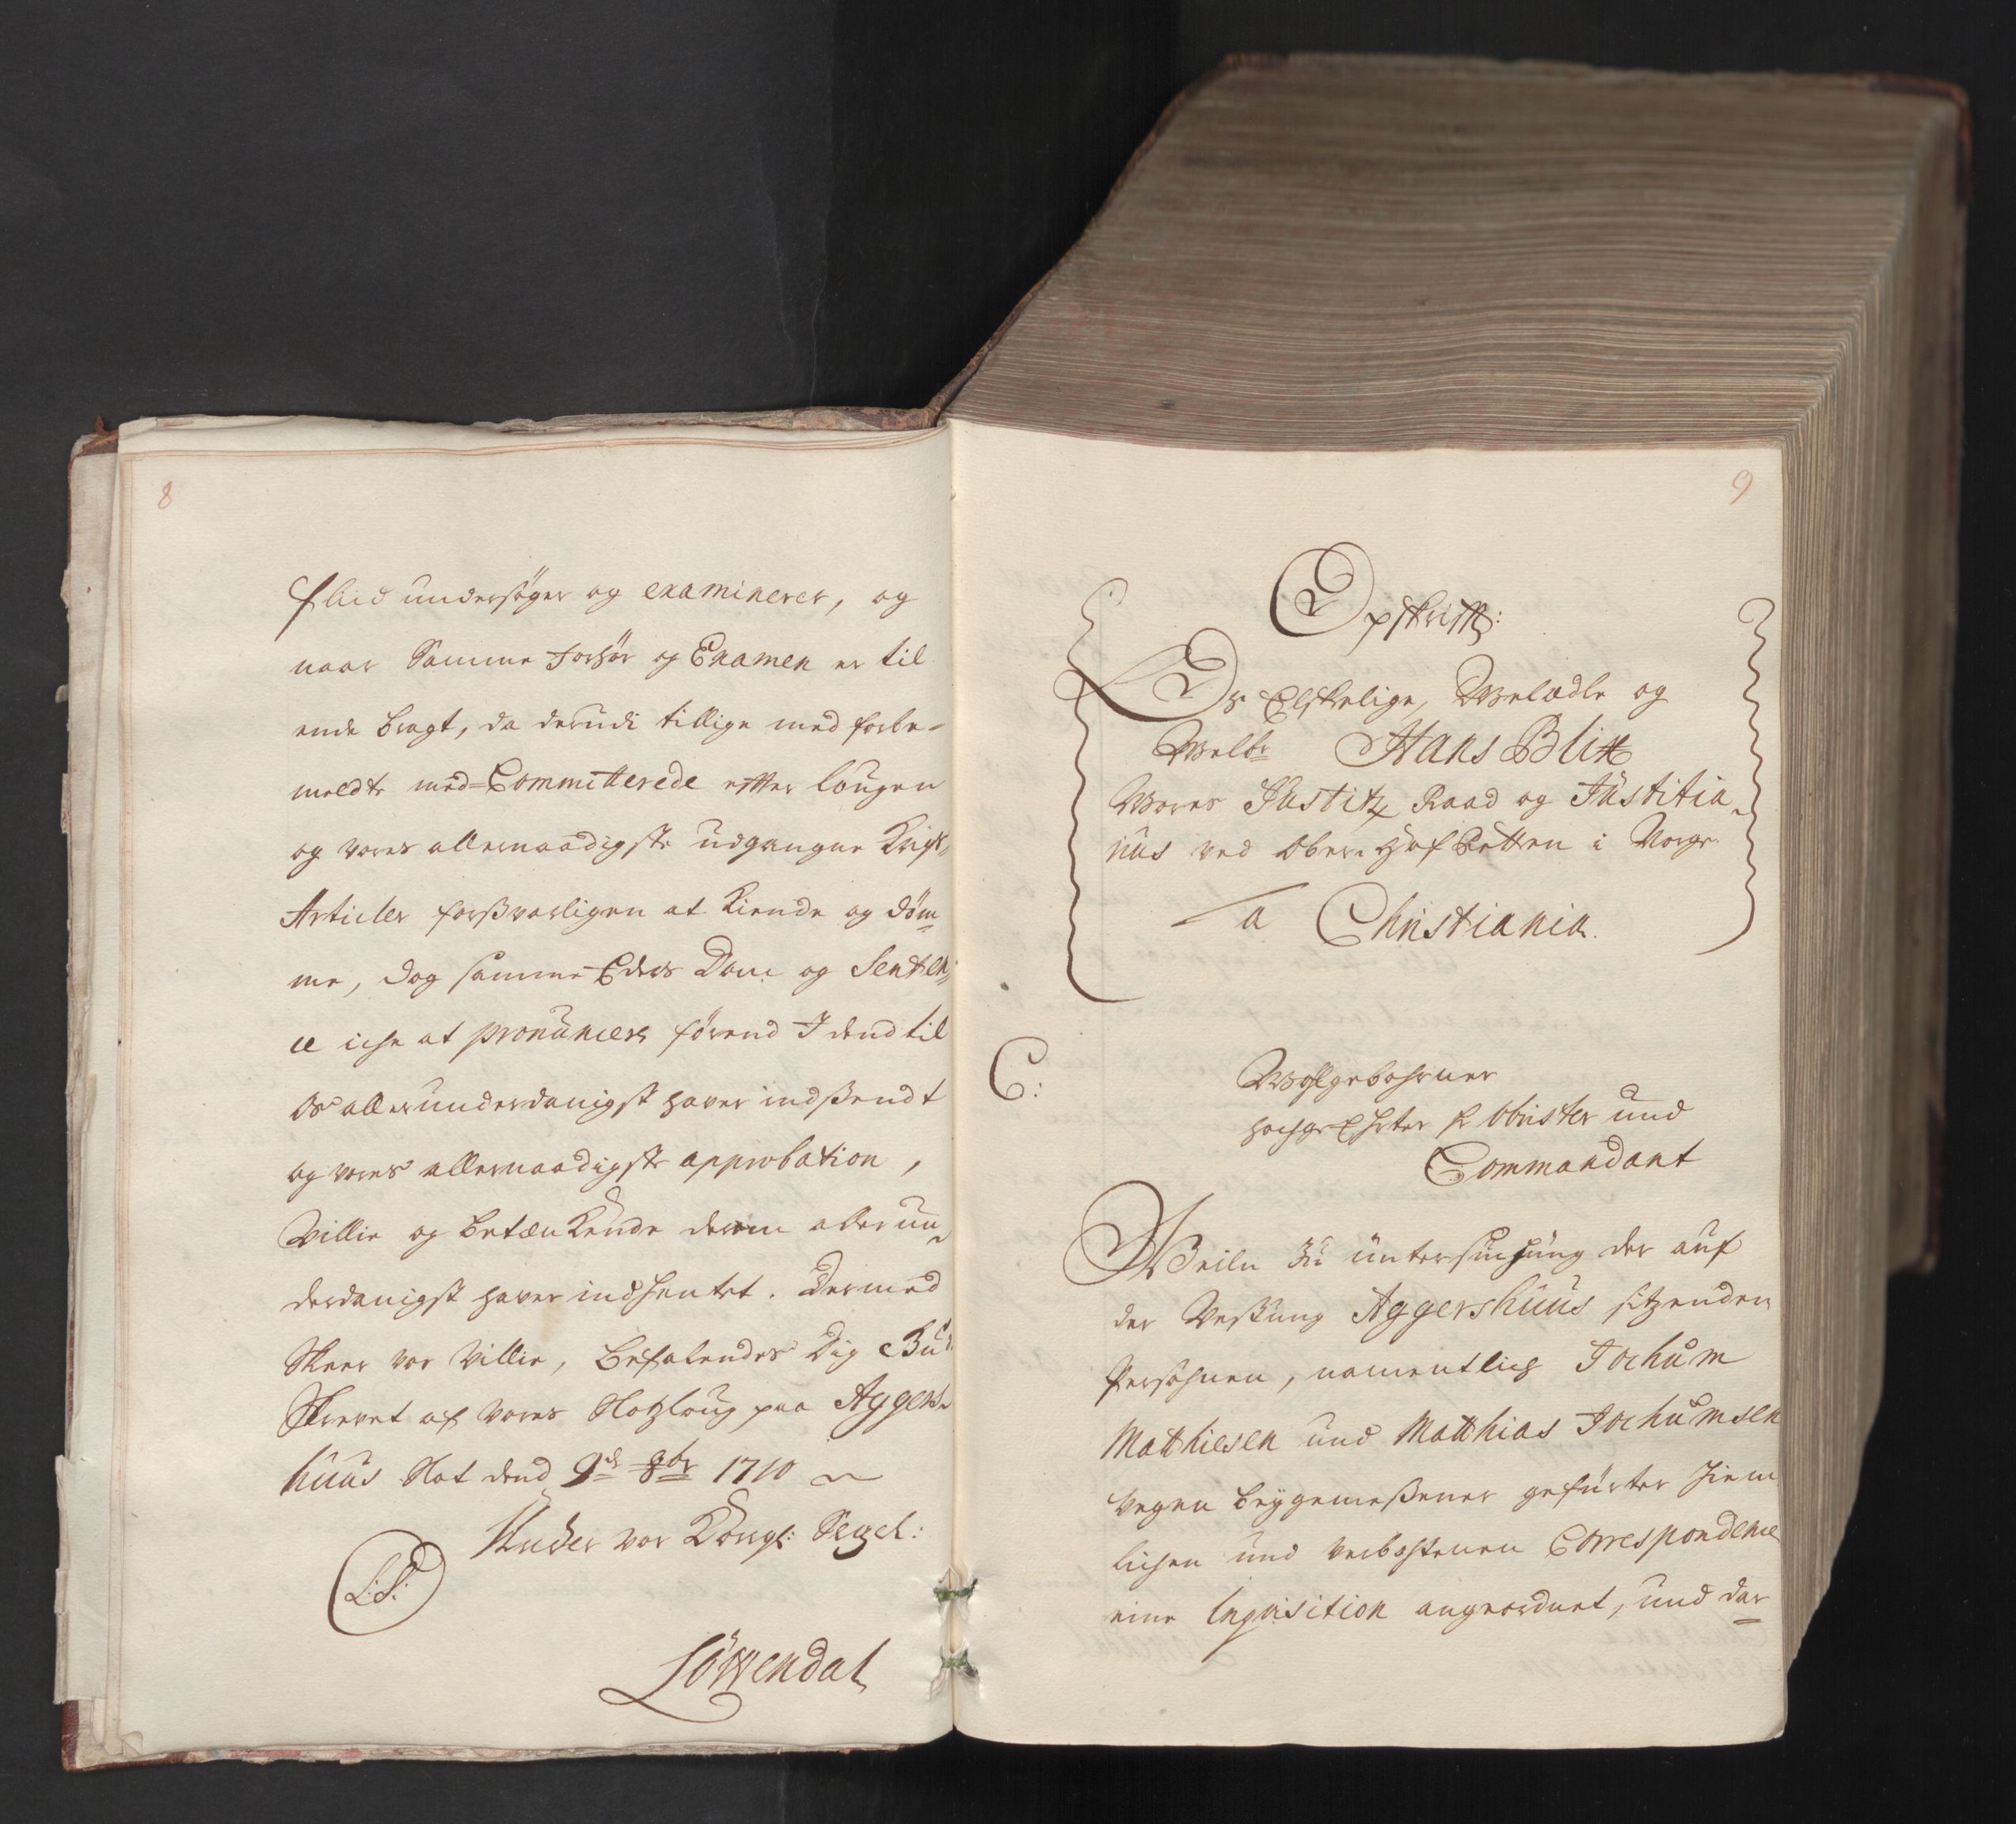 8
flid undersøger og examinerer, og
naar Samme Forhør og Examen er til
ende bragt, da derudi tillige med forbe-
meldte med-Committerede effter lougen
og vores allernaadigste udgangne Krigs-
Articler forsvarligen at Kiende og döm-
me, dog samme Eders Dom og Senten-
ce iche at pronuncere förend I dend til
Os allerunderdanigst haver indsendt
og vores allernaadigste approbation,
Villie og betænkende derom allerun-
derdanigst haver indhentet. Dermed
Skeer vor Villie, Befalendes Dig Gud
Skrevet af Vores Slotzloug paa Aggers-
huus Slot dend 9de 8br 1710
Under vor Kongl: Segel:
L:S:
Löwendal
9
Opskrifft:
Os Elskelige, Welædle og
Welbr Hans Blix
Wores Justitz Raad og Justitia-
rius ved Ober-Hof Retten i Norge
a Christiania.
C:
Wohlgebohrner
hochgeEhrter H Obrister und
Commandant
Weiln zu untersuchung der auf
der Vestung Aggershuus sitzenden
Persohnen, namentlich Jochum
Matthiesen und Matthias Jochumsen
wegen beygemeßener geführter
lichen und verbothenen Correspondence
eine Inquisition angeordnet, und dar